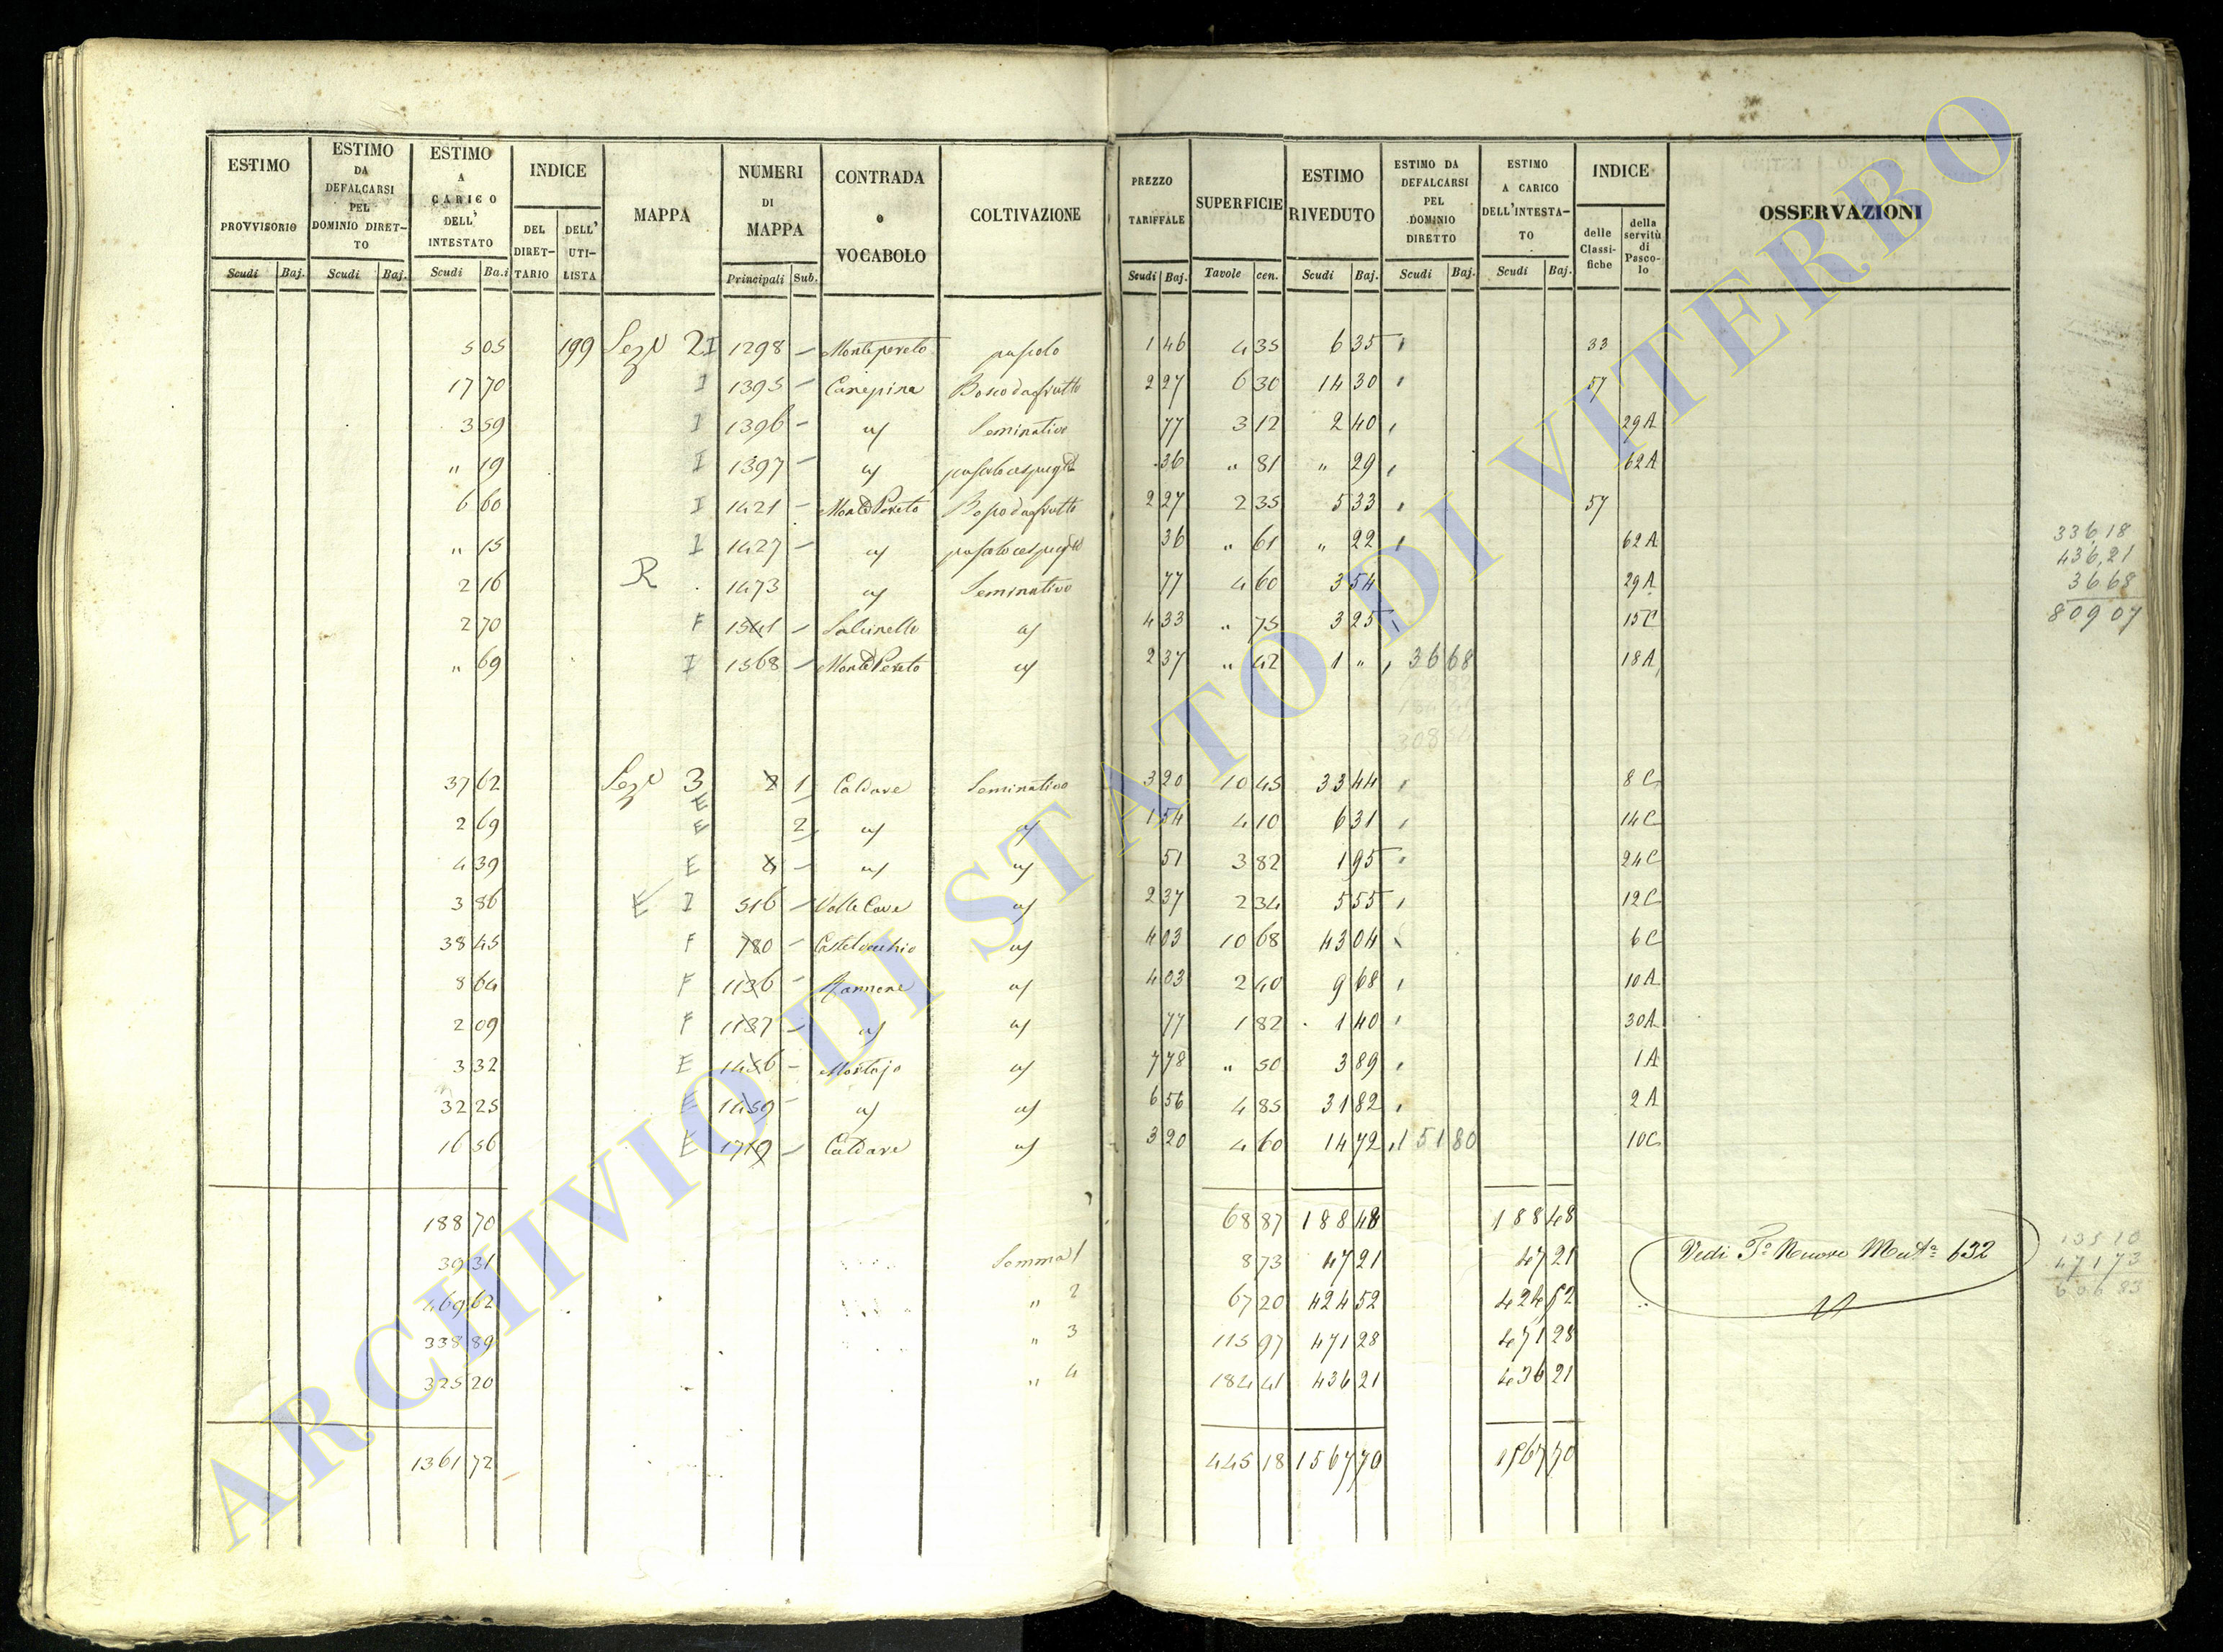 ESTIMO PROVVISORIO Scudi Baj.
ESTIMO DA DEFALCARSI PEL DOMINIO DIRET-TO Scudi Baj.
ESTIMO A CARICO DELL' INTESTATO Scudi Ba.i
INDICE DEL DIRET-TARIO DELL' UTI-LISTA
MAPPA
NUMERI DI MAPPA Principali Sub.
CONTRADA o VOCABOLO
COLTIVAZIONE
PREZZO TARIFFALE Scudi Baj.
SUPERFICIE Tavole cen.
ESTIMO RIVEDUTO Scudi Baj.
ESTIMO DA DEFALCARSI PEL DOMINIO DIRETTO Scudi Baj.
ESTIMO A CARICO DELL'INTESTA-TO Scudi Baj.
INDICE delle Classi-fiche della servitù di Pasco-lo
OSSERVAZIONI
5 05 199 Sez. 2 I 1298 – Monte pereto pascolo 1 46 4 35 6 35 33
17 70 I 1395 – Canepina Bosco da frutto 2 27 6 30 14 30 57
3 59 I 1396 – Seminativo 77 3 12 2 40 29A
" 19 I 1397 – 36 " 81 " 29 62A
6 60 I 1421 – Monte Pereto Bosco da frutto 2 27 2 35 5 33 57
" 15 I 1427 – 36 " 61 " 22 62A
2 16 R 1473 Seminativo 77 4 60 3 54 29A
2 70 F 1541 – 4 33 " 75 3 25 15C
" 69 I 1568 – Monte Pereto 2 37 " 42 1 " 36 68 18A
37 62 Sez. 3 E 2 1 Caldare Seminativo 3 20 10 45 33 44 8C
2 69 E 2 1 54 4 10 6 31 14C
4 39 E 4 – 51 3 82 1 95 24C
3 86 E I 516 – Valle Cave 2 37 2 34 5 55 12C
38 45 F 780 – Castelvecchio 4 03 10 68 43 04 6C
8 64 F 1136 – 4 03 2 40 9 68 10A
2 09 F 1137 – 77 1 82 1 40 30A
3 32 E 1456 – 7 78 " 50 3 89 1A
32 25 E 1459 – 6 56 4 85 31 82 2A
16 56 E 1719 – Caldare 3 20 4 60 14 72 151 80 10C
188 70 68 87 188 48 188 48
39 31 Somma 1 8 73 47 21 47 21 Vedi To Nuovo Mata 632
469 62 " 2 67 20 424 52 424 52
338 89 " 3 115 97 471 28 471 28
325 20 " 4 184 41 436 21 436 21
1361 72 445 18 1567 70 1567 70
336,18
436,21
36 68
809 07
135 10
471 73
606 83
ARCHIVIO DI STATO DI VITERBO